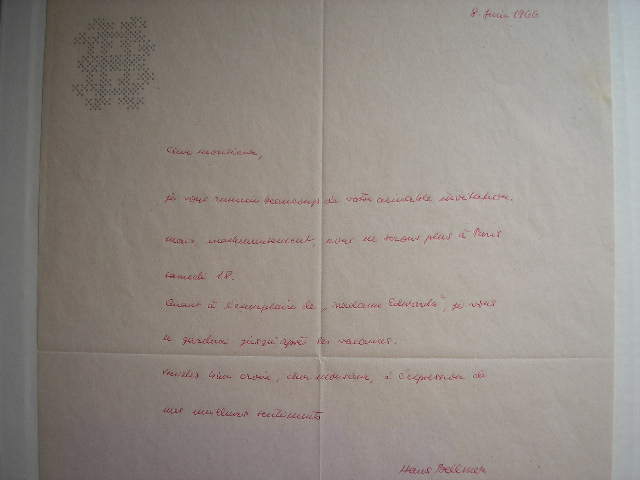 8 Juin 1966
Cher monsieur,
je vous remercie beaucoup de votre aimable invitation.
mais, malheureusement, nous ne serons plus à Paris
samedi 18.
Quant à l'exemplaire de „Madame Edwarda", je vous
le garderai jusqu'après les vacances.
veuillez bien croire, cher monsieur, à l'expression de
mes meilleurs sentiments
Hans Bellmer